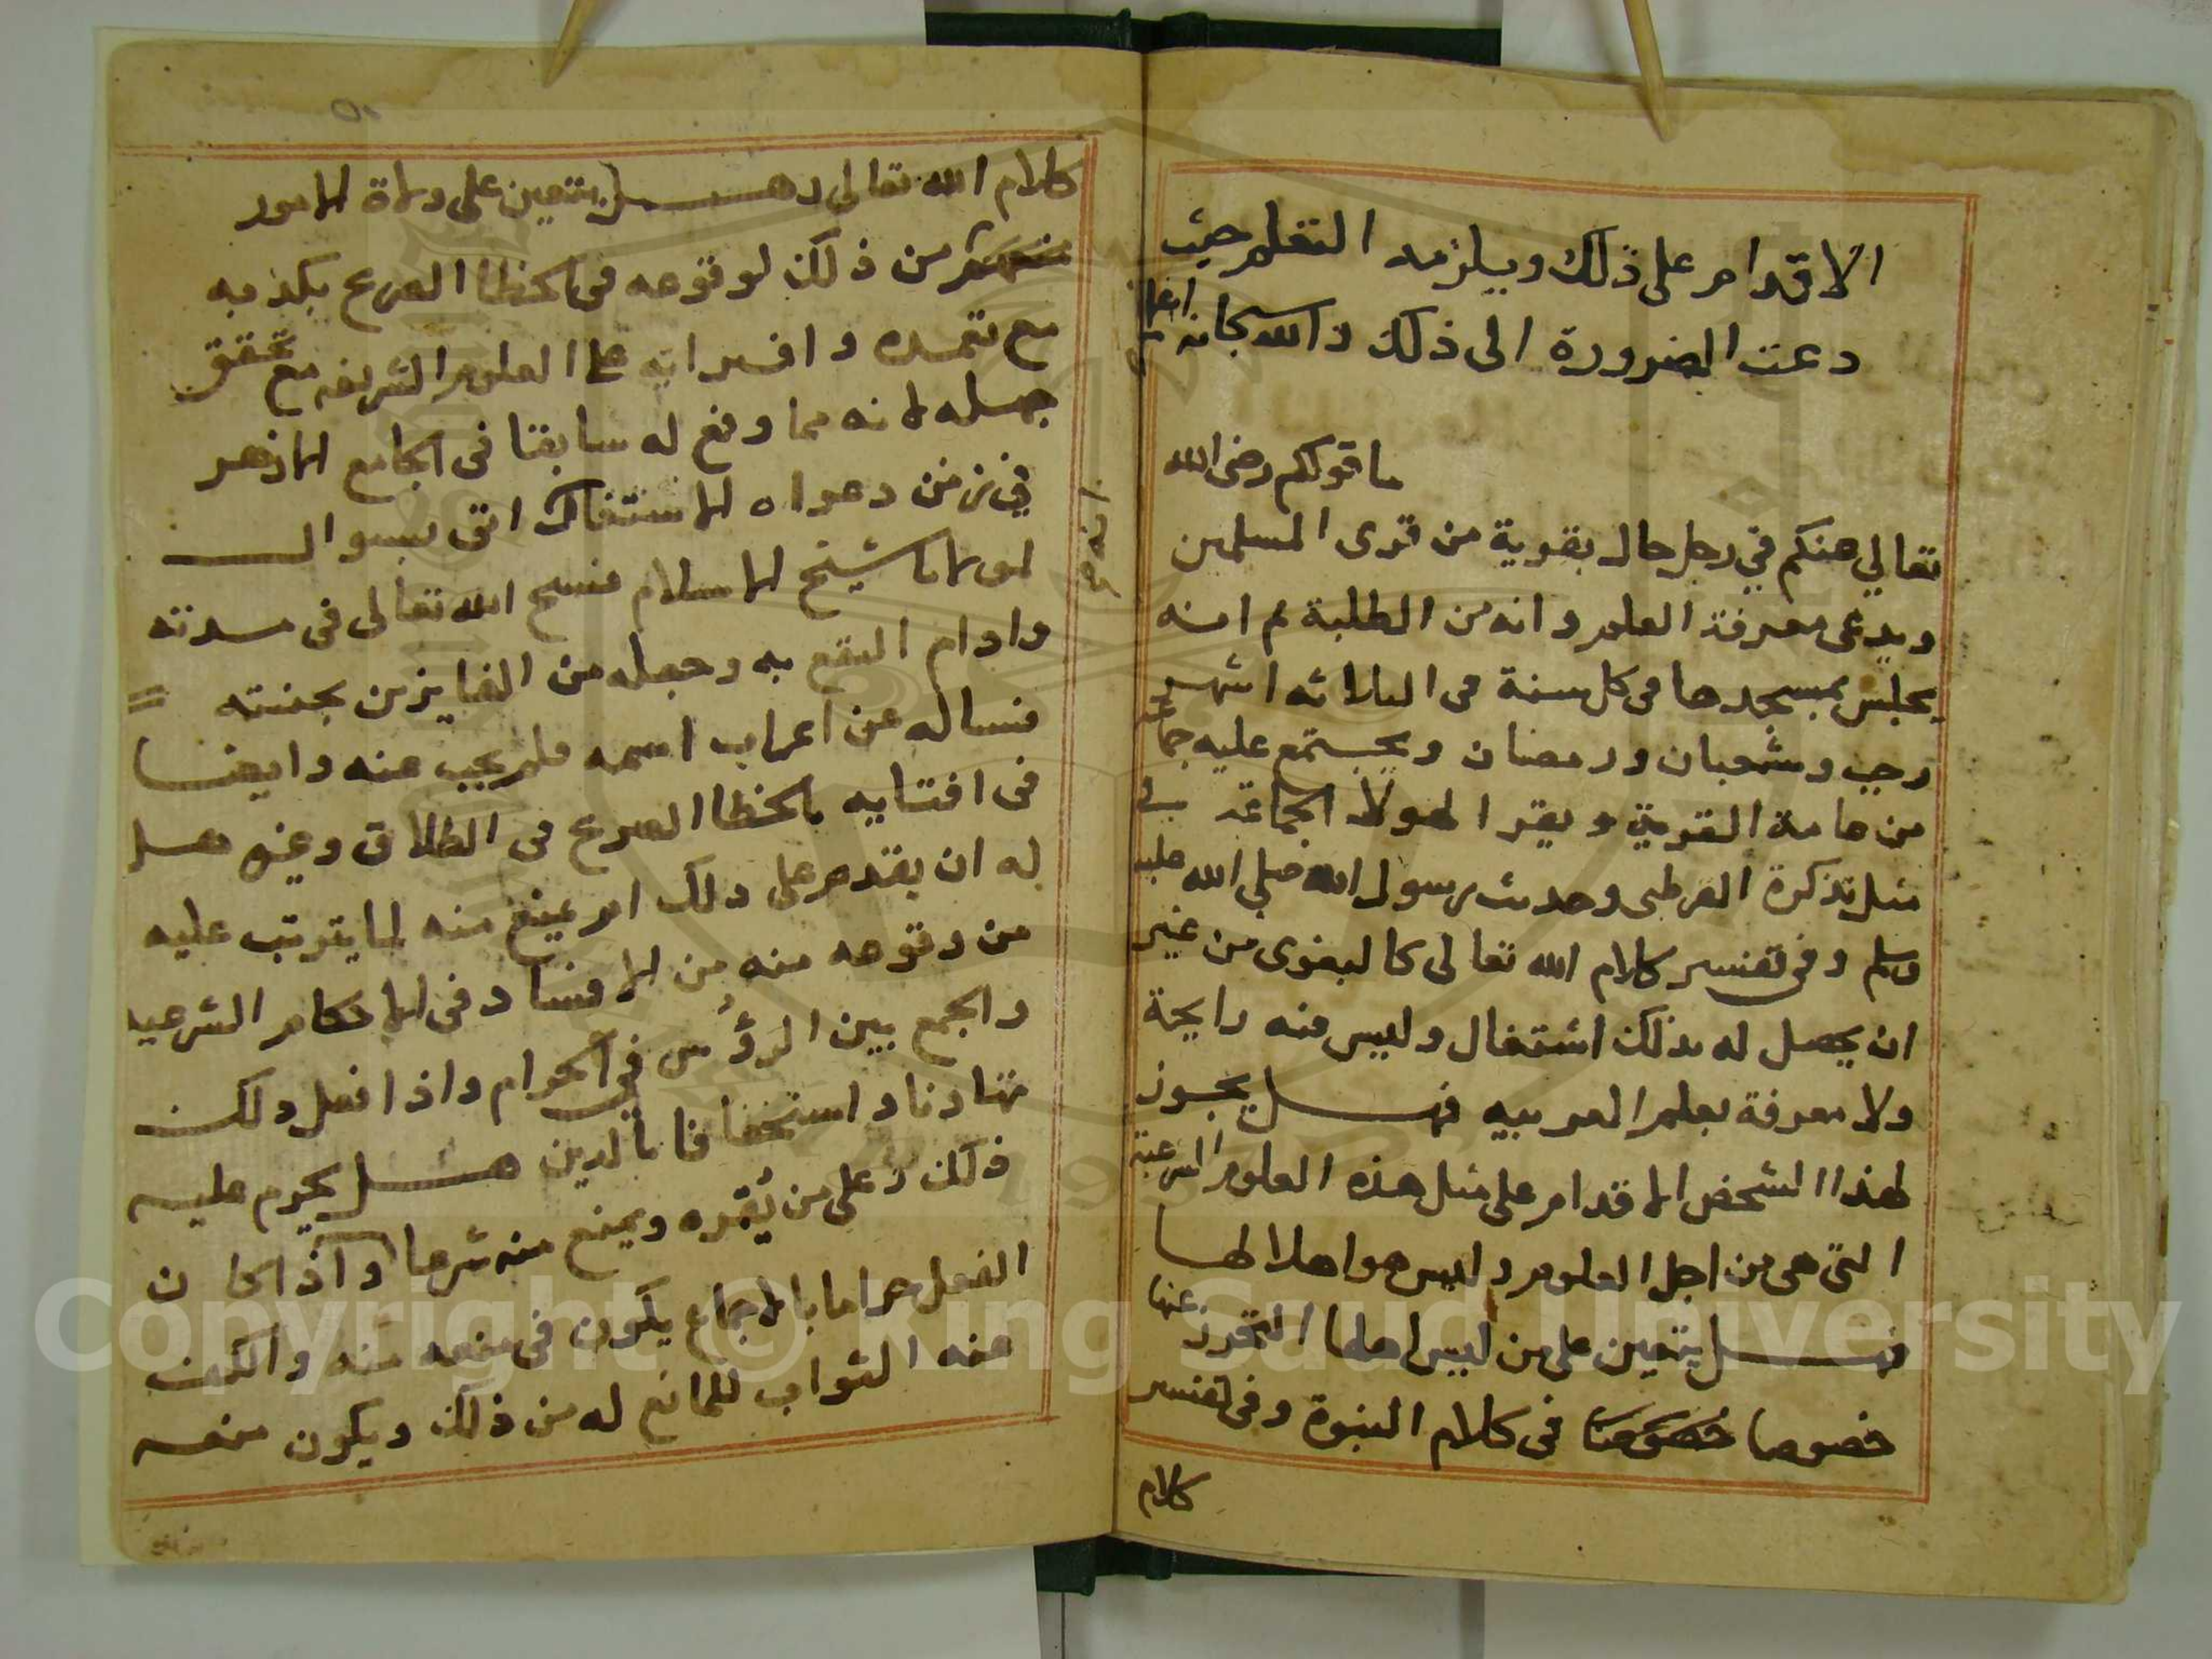 الاقدام على ذلك ويلزمه التعلم حيث
دعت الضرورة الى ذلك والله سبحانه اعلم
ما قولكم رضى الله
تعالي عنكم في رجل حال بقرية من قرى المسلمين
ويدعى معرفة العلم وانه من الطلبة ثم انه
يجلس بمسجدها فى كل سنة فى الثلاثه اشهر
رجب وشعبان ورمضان ويجتمع عليه جماعة
من عامة القرية ويقرا لهولا الجماعة
مثل تذكرة القرطبى وحديث رسول الله صلي الله عليه
وسلم وفى تفسير كلام الله تعالى كالبغوى من غير
ان يحصل له بذلك اشتغال وليس منه رايحة
ولا معرفة بعلم العربيه فهل يجوز
لهذا الشخص الاقدام على مثل هذه العلوم الشرعية
التى هى من اجل العلوم وليس هو اهلا لها
فهل يتعين على من ليس اهلها التحرز عنها
خصوصا خصوصا فى كلام النبوة وفى تفسير
كلام
كلام الله تعالى وهل يتعين على ولاة الامور
من ذلك لوقوعه فى الخطا الصريح بكذبه
مع تعمده وافترايه على العلوم الشريفه مع تحقق
جهله لانه مما وقع له سابقا فى الجامع الازهر
في زمن دعواه الاشتغال اتى بسوال
لمولانا شيخ الاسلام فسح الله تعالى فى مدته
وادام النفع به وجعله من الفايزين بجنته
فساله عن اعراب اسمه فلم يجب عنه وايضا
فى افتايه بالخطا الصريح فى الطلاق وغيره هل
له ان يقدم على ذلك ام يمنع منه لما يترتب عليه
من وقوعه منه من الافساد فى الاحكام الشرعيه
والجمع بين الرؤس في الحرام واذا فعل ذلك
تهاونا واستخفافا بالدين هل يحرم عليه
ذلك وعلى من يُقره ويمنع منه شرعا واذا كان
الفعل حراما بالاجماع يكون فى منعه منه والكف
عنه الثواب للمانع له من ذلك ويكون منعه